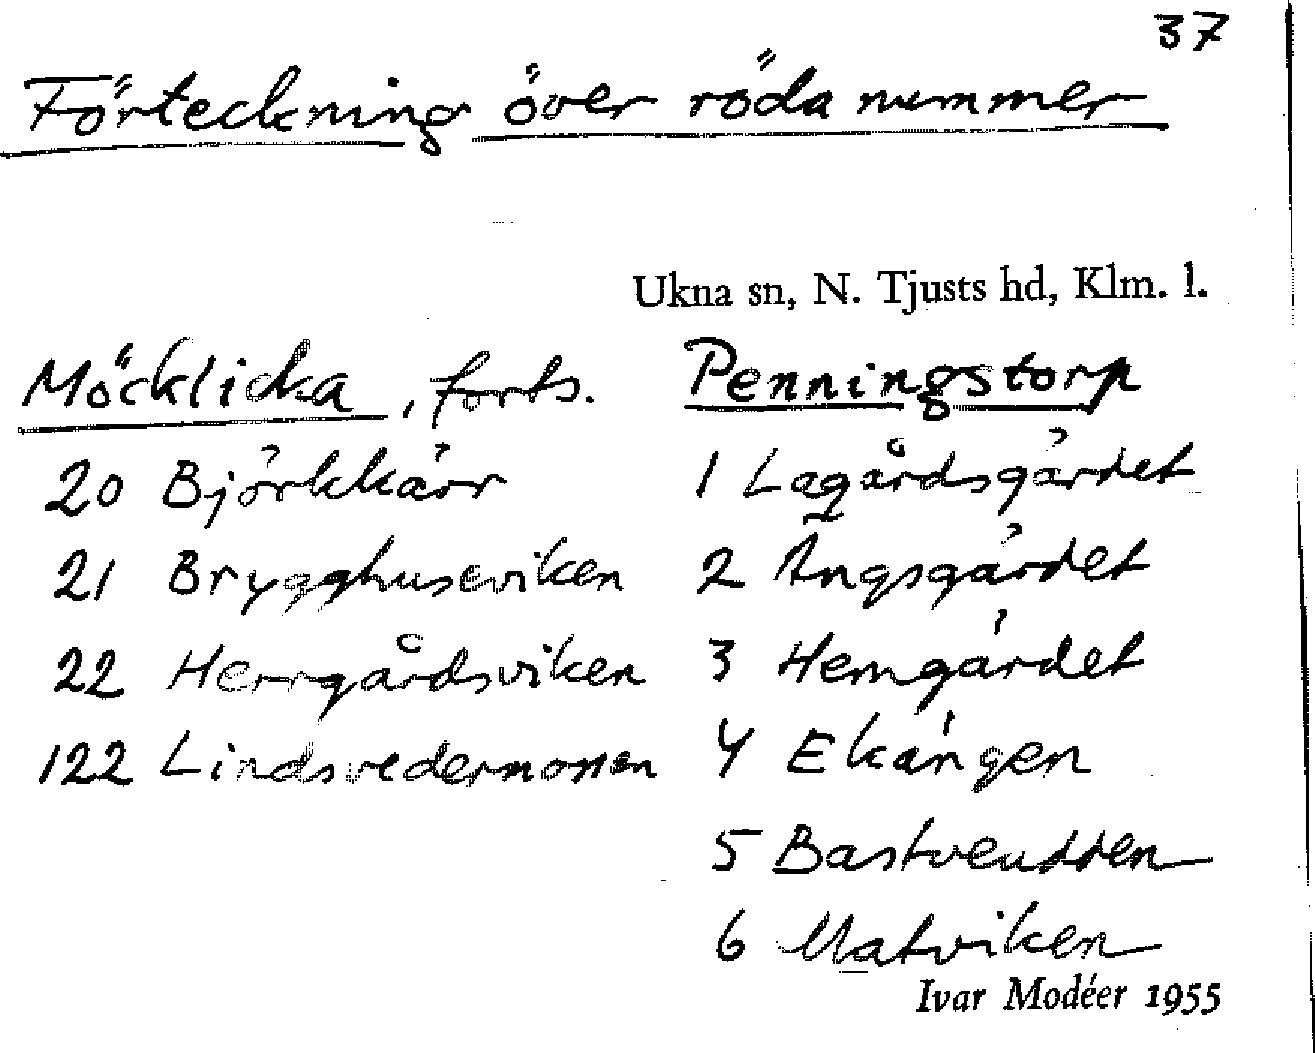 37
Förteckning över röda nummer
Ukna sn, N. Tjusts hd, Klm. l.
Möcklicka, forts.
20 Björkkärr
21 Brygghuseviken
22 Herrgårdsviken
122 Lindsvedermossen
Penningstorp
1 Lagårdsgärdet
2 Ängsgärdet
3 Hemgärdet
4 Ekängen
5 Bastveudden
6 Matviken
Ivar Modéer 1955